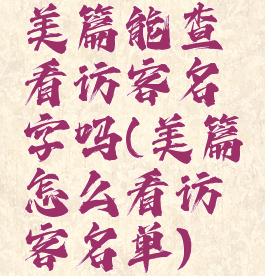 美篇能查
看访客名
字吗(美篇
怎么看访
客名单)